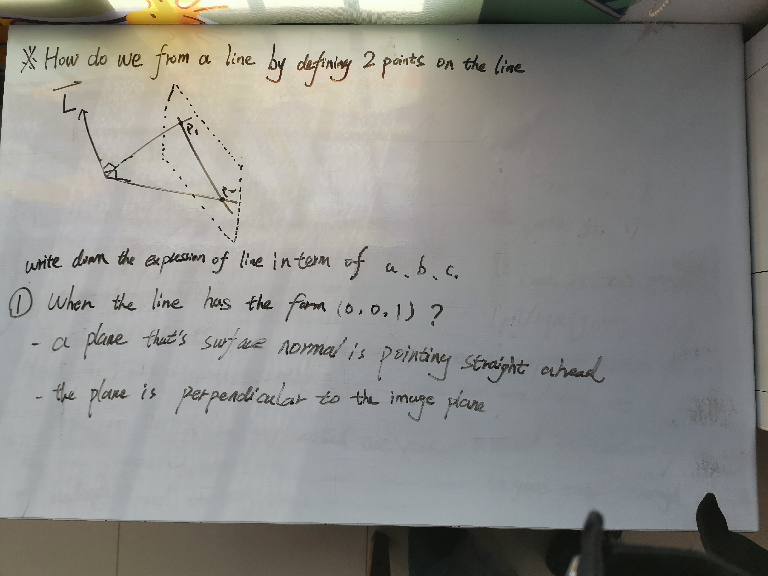 ※ How do we from a line by defining 2 points on the line
L
P1
write down the expression of line in term of a, b, c.
① When the line has the form (0, 0, 1) ?
- a plane that's surface normal is pointing straight ahead
- the plane is perpendicular to the image plane